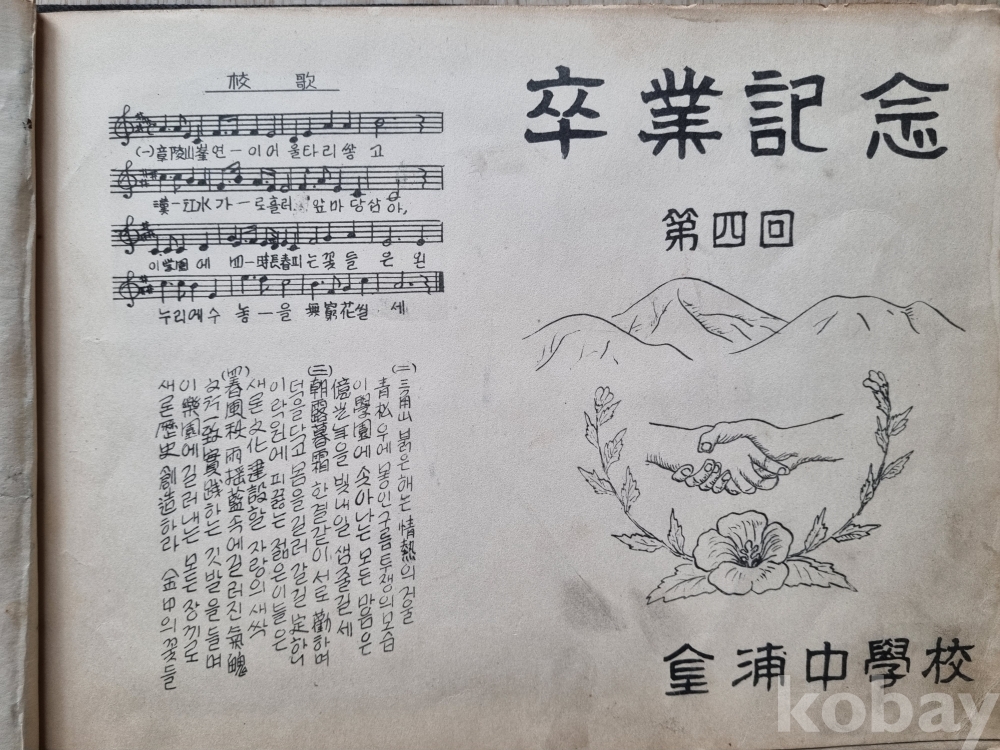 校 歌
(一)章陵山峯연ー이어울타리쌓고
漢ー江水가ー로흘러. 앞마당삼아,
이學園에 四ー時長春피는꽃들은 왼
누리에수놓ー을 無窮花씰세
(二)三角山 붉은해는 情熱의 거울
青松우에 몽인구름 투쟁의 모습
이學園에 솟아나는 모든 마음은
億光年을 빛내일 샘줄길세
(三)朝露暮霜 한결같이 서로 勸하며
덕을닦고 몸을길러 갈길 定하니
이락원에 피끓는 젊은이들은
새론文化 建設할 자랑의 새싹
(四)春風秋雨搖藍속에길러진氣魄
實践하는 깃발을 들며
이樂園에 길러내는 모든 장끼로
새론歷史 創造하라 金中의꽃들
卒業記念
第四回
金浦中學校
kobay